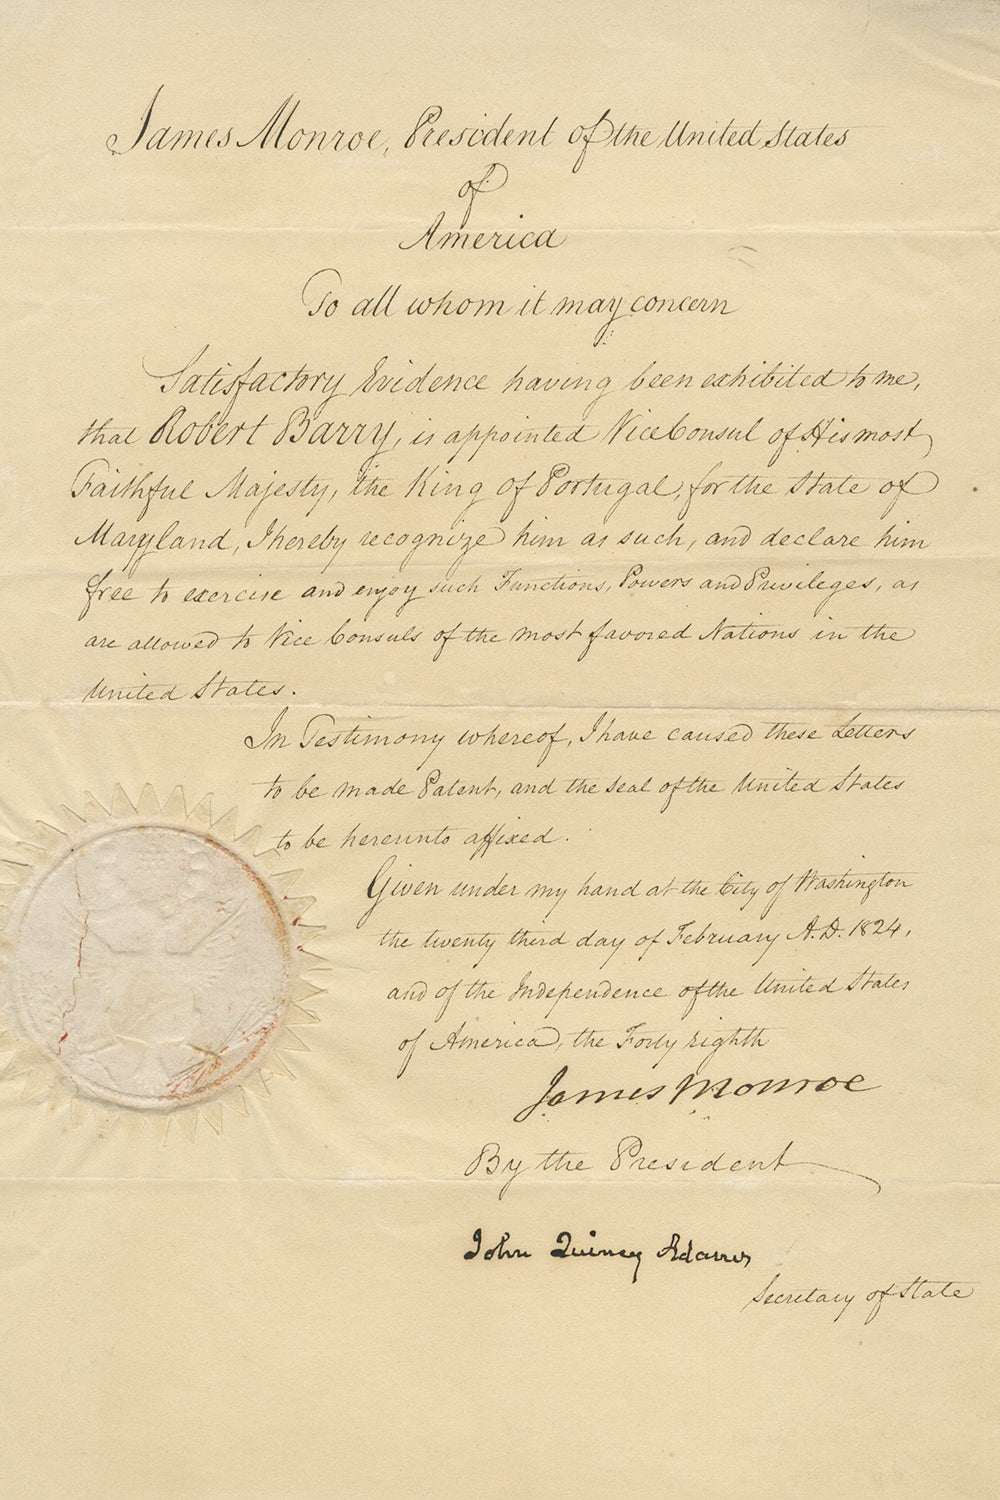 James Monroe, President of the United States
of
America
To all whom it may concern
Satisfactory Evidence having been exhibited to me,
that Robert Barry, is appointed Vice Consul of His most
Faithful Majesty, the King of Portugal, for the State of
Maryland, I hereby recognize him as such, and declare him
free to exercise and enjoy such Functions, Powers and Privileges, as
are allowed to Vice Consuls of the most favored Nations in the
United States.
In Testimony whereof, I have caused these Letters
to be made Patent, and the seal of the United States
to be hereunto affixed.
Given under my hand at the City of Washington
the twenty third day of February A.D. 1824,
and of the Independence of the United States
of America, the Forty eighth
James Monroe
By the President
John Quincy Adams
Secretary of State